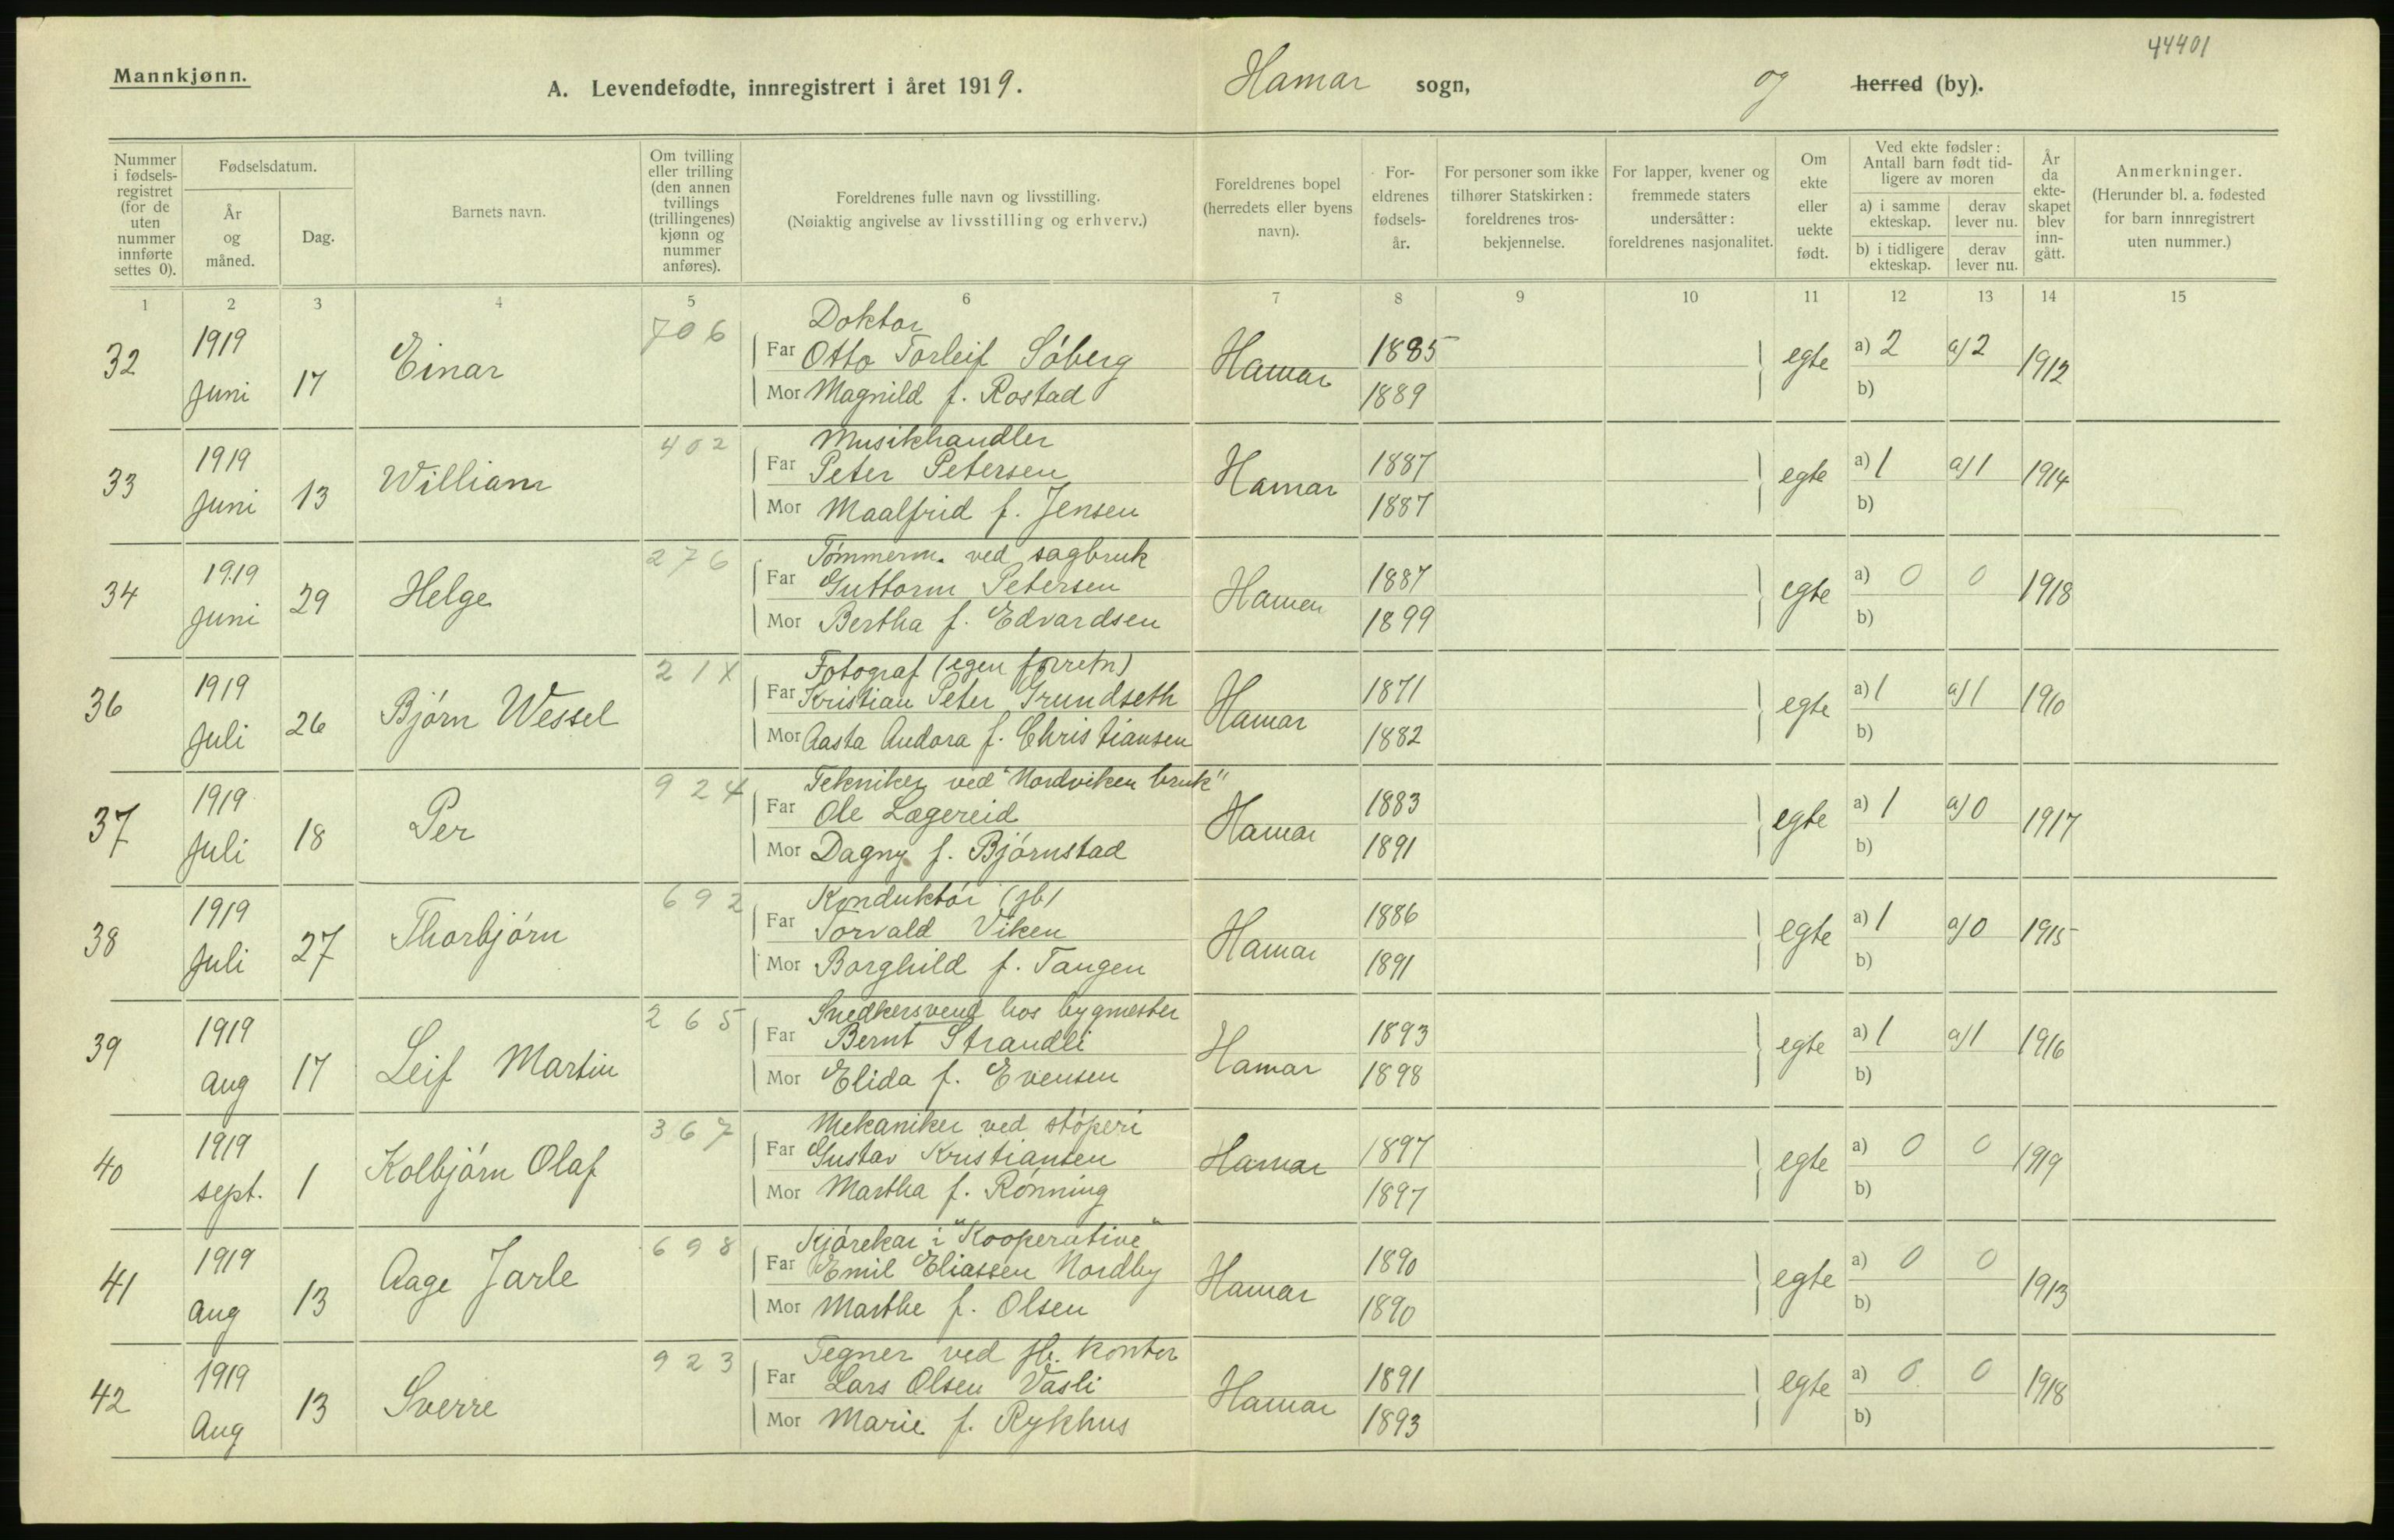 44401
Mannkjønn.
A. Levendefødte, innregistrert i året 1919.
Hamar sogn, og herred (by).
Nummer i fødsels-registret (for de uten nummer innførte settes 0).
Fødselsdatum.
År og måned.
Dag.
Barnets navn.
Om tvilling eller trilling (den annen tvillings (trillingenes) kjønn og nummer anføres).
Foreldrenes fulle navn og livsstilling.
(Nøiaktig angivelse av livsstilling og erhverv.)
Foreldrenes bopel (herredets eller byens navn).
For-eldrenes fødsels-år.
For personer som ikke tilhører Statskirken: foreldrenes tros-bekjennelse.
For lapper, kvener og fremmede staters undersåtter: foreldrenes nasjonalitet.
Om ekte eller uekte født.
Ved ekte fødsler: Antall barn født tid-ligere av moren
a) i samme ekteskap.
derav lever nu.
b) i tidligere ekteskap.
derav lever nu.
År da ekte-skapet blev inn-gått.
Anmerkninger.
(Herunder bl. a. fødested for barn innregistrert uten nummer.)
1 2 3 4 5 6 7 8 9 10 11 12 13 14 15
706 Doktor
32 1919 Juni 17 Einar Far Otto Torleif Söberg Hamar 1885 egte a) 2 a) 2 1912
Mor Magnild f. Rostad 1889 b)
402 Musikhandler
33 1919 Juni 13 William Far Peter Petersen Hamar 1887 egte a) 1 a) 1 1914
Mor Maalfrid f. Jensen 1887 b)
276 Tömmerm. ved sagbruk
34 1919 Juni 29 Helge Far Guttorm Petersen Hamar 1887 egte a) 0 0 1918
Mor Bertha f. Edvardsen 1899 b)
21X Fotograf (egen forretn)
36 1919 Juli 26 Björn Wessel Far Kristian Peter Grundseth Hamar 1871 egte a) 1 a) 1 1910
Mor Aasta Andora f. Christiansen 1882 b)
924 Tekniker ved "Nordviken bruk"
37 1919 Juli 18 Per Far Ole Lægereid Hamar 1883 egte a) 1 a) 0 1917
Mor Dagny f. Björnstad 1891 b)
692 Konduktör (jb)
38 1919 Juli 27 Thorbjörn Far Torvald Viken Hamar 1886 egte a) 1 a) 0 1915
Mor Borghild f. Tangen 1891 b)
265 Snedkersvend hos bygmester
39 1919 Aug 17 Leif Martin Far Bernt Strandli Hamar 1893 egte a) 1 a) 1 1916
Mor Elida f. Evensen 1898 b)
367 Mekaniker ved stöperi
40 1919 sept. 1 Kolbjörn Olaf Far Gustav Kristiansen Hamar 1897 egte a) 0 0 1919
Mor Martha f. Rönning 1897 b)
698 Kjörekar i "Kooperative"
41 1919 Aug 13 Aage Jarle Far Emil Eliassen Nordby Hamar 1890 egte a) 0 0 1913
Mor Marthe f. Olsen 1890 b)
923 Tegner ved jb. kontor
42 1919 Aug 13 Sverre Far Lars Olsen Vasli Hamar 1891 egte a) 0 0 1918
Mor Marie f. Rykhus 1893 b)